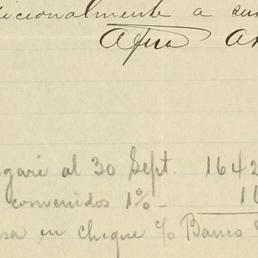 dicionalmente a cum
garé al 30 Sept. 1642
convenidos 1%- 1
sa en cheque c/ Banco